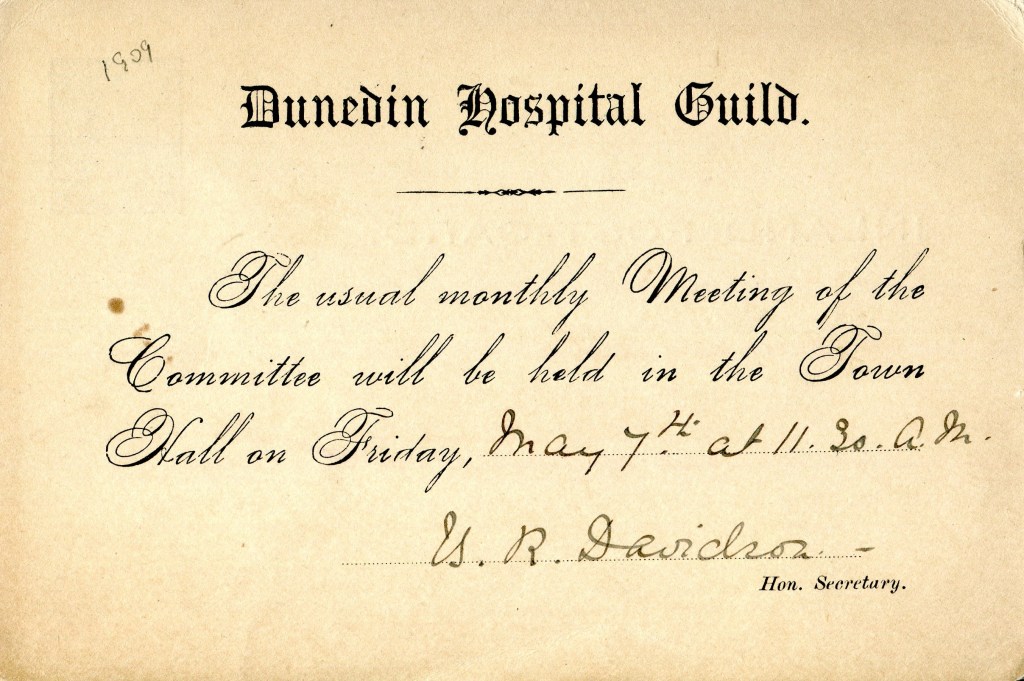 1909
Dunedin Hospital Guild.
The usual monthly Meeting of the
Committee will be held in the Town
Hall on Friday, May 7th. at 11.30. A.M.
R. Davidson
Hon. Secretary.